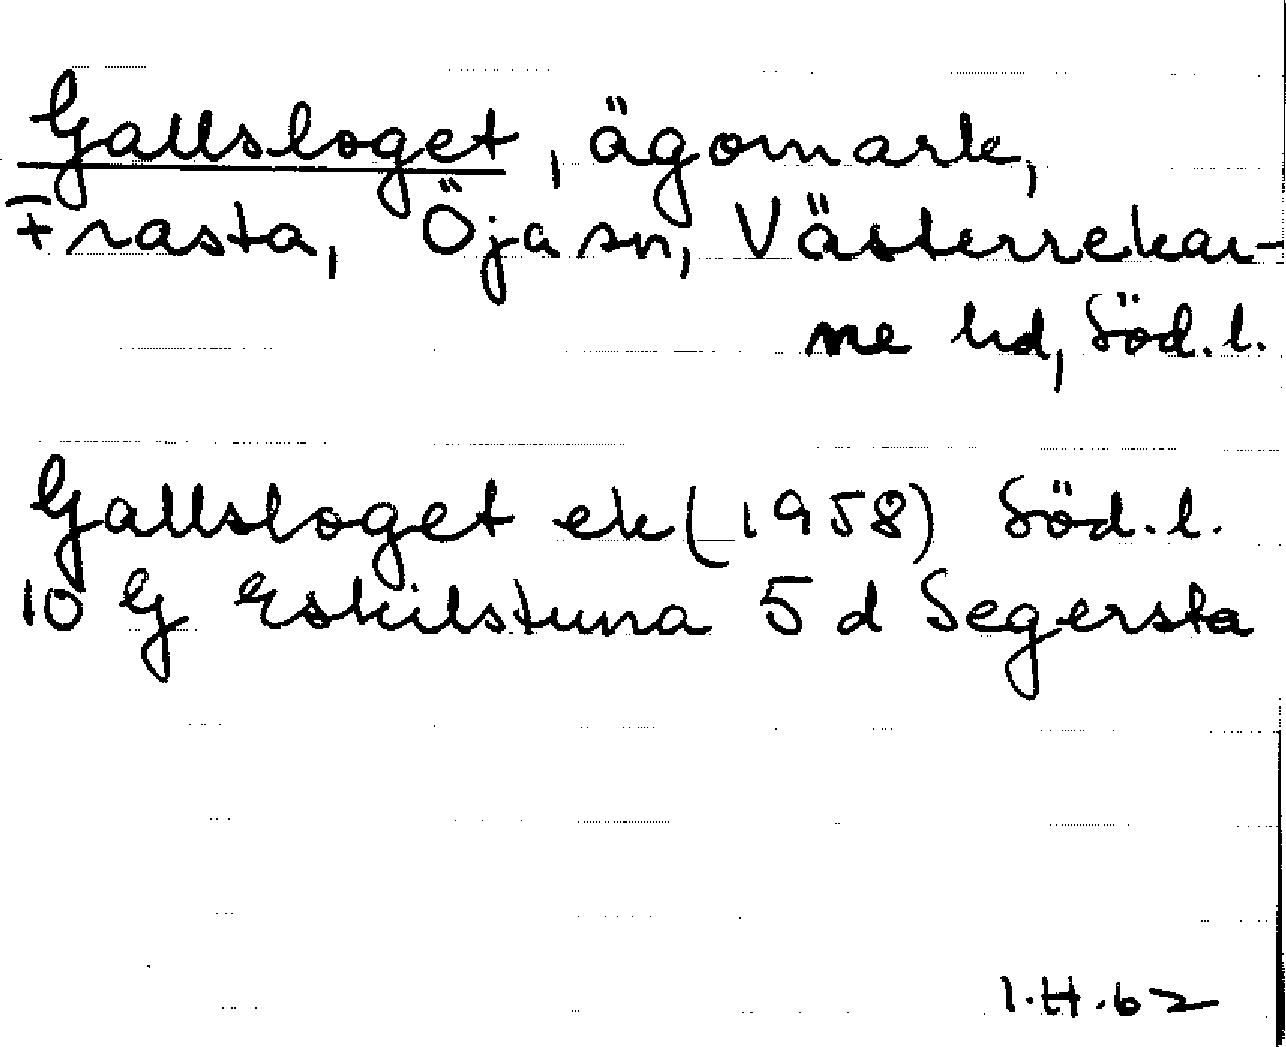 Gallsloget, ägomark,
Frasta, Öja sn, Västerrekar-
ne hd, Söd.l.
Gallsloget ek (1958) Söd.l.
10 G Eskilstuna 5 d Segersta
I.H.62